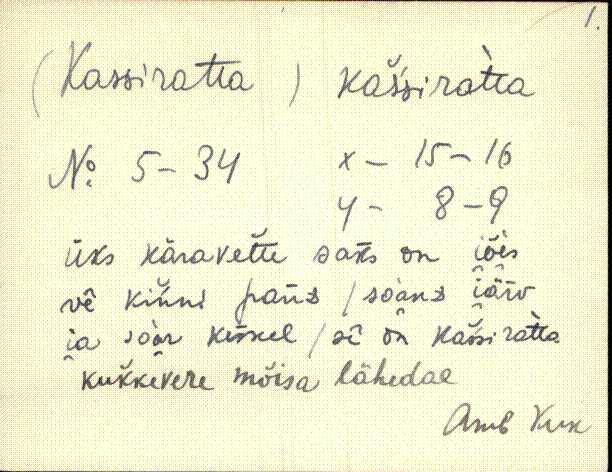 1.
(Kassiratta) kaš́siràtta
No 5-34 x - 15-16
y - 8-9
üks käravette saks on iões
vê kińni pańd / soand iärv
ia soar keskel / sê on kaśsiràtta
kukkevere mõisa lähedal
Amb Kuk